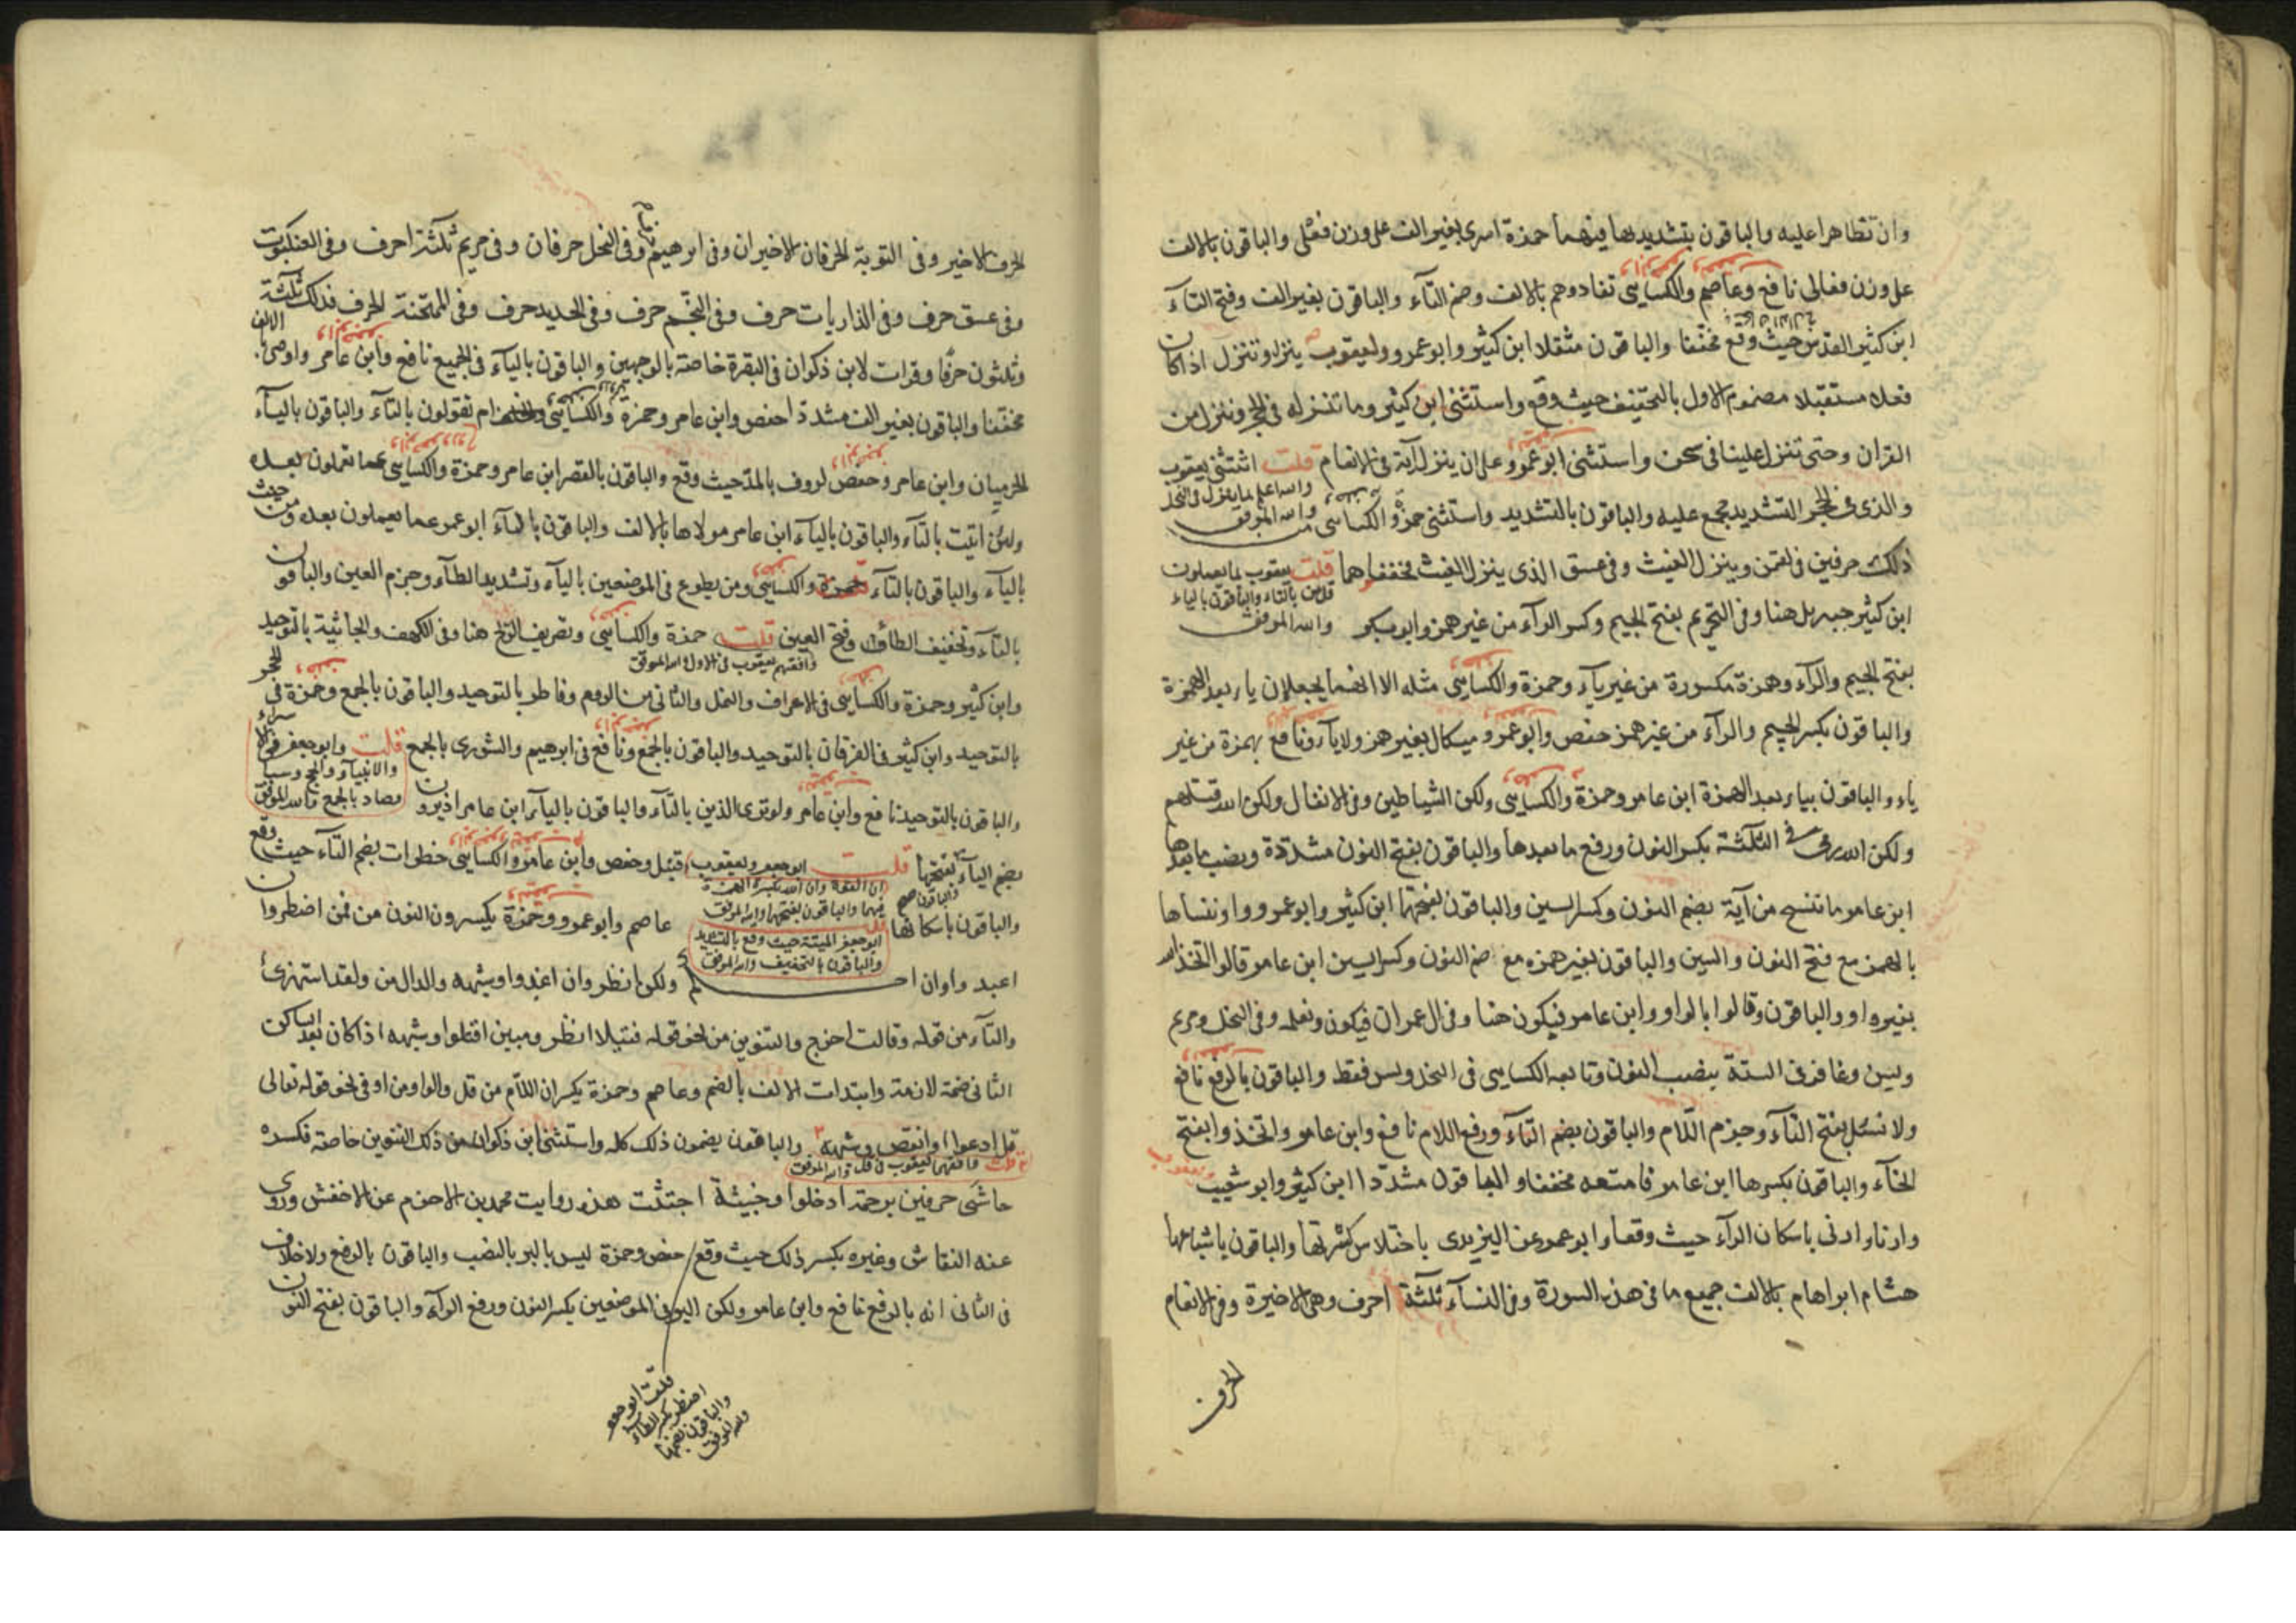 وان تظاهرا عليه والباقون بتشديدها فيهما حمزة اسرى بغير الف على وزن فعلى والباقون بالالف
على وزن فعالى نافع وعاصم والكسايى تفادوهم بالالف وضم التآء والباقون بغير الف وفتح التآء
ابن كثير القدس حيث وقع مخففا والباقون مثقلا ابن كثير وابو عمرو ويعقوب ينزل وتنزل اذا كان
فعلا مستقبلا مضموم الاول بالتخفيف حيث وقع واستثنى ابن كثير وما ننزله فى الحجر وننزل من
القران وحتى تنزل علينا فى سبحن واستثنى ابو عمرو على ان ينزل آية فى الانعام قلت استثنى يعقوب
والله اعلم بما ينزل فى النحل
والله الموفق
والذى فى الحجر التشديد مجمع عليه والباقون بالتشديد واستثنى حمزة والكسايى من
ذلك حرفين فى لقمن وينزل الغيث وفى عسق الذى ينزل الغيث مخففا هما قلت يعقوب بما يعملون
قل من بالتاء والباقون بالياء
والله الموفق
ابن كثير جبريل هنا وفى التحريم بفتح الجيم وكسر الرآء من غير همز وابو بكر
بفتح الجيم والرآء وهمزة مكسورة من غير يآء وحمزة والكسايى مثله الا انهما يجعلان ياء بعد الهمزة
والباقون بكسر الجيم والرآء من غير همز حفص وابو عمرو ميكال بغير همز ولا يآء ونافع بهمزة من غير
ياء والباقون بياء بعد الهمزة ابن عامر وحمزة والكسايى ولكن الشياطين وفى الانفال ولكن الله قتلهم
ولكن الله رمى فى الثلثة بكسر النون ورفع ما بعدها والباقون بفتح النون مشددة ونصب ما بعدها
ابن عامر ما ننسخ من آية بضم النون وكسر السين والباقون بفتحهما ابن كثير وابو عمرو او ننسأها
بالهمز مع فتح النون والسين والباقون بغير همزه مع ضم النون وكسر السين ابن عامر قالوا اتخذ الله
بغير واو والباقون وقالوا بالواو وابن عامر فيكون هنا وفى ال عمران فيكون ونعلمه وفى النحل ومريم
ويس وغافر فى الستة بنصب النون وتابعه الكسايى فى النحل ويس فقط والباقون بالرفع نافع
ولا تسئل بفتح التآء وجزم اللام والباقون بضم التآء ورفع اللام نافع وابن عامر واتخذوا بفتح
الخآء والباقون بكسرها ابن عامر فامتعه مخففا والباقون مشددا ابن كثير وابو شعيب
وارنا وارنى باسكان الرآء حيث وقعا وابو عمرو عن اليزيدى باختلاس كسرتها والباقون باشباعها
هشام ابراهام بالالف جميع ما فى هذه السورة وفى النسآء ثلثة احرف وهى الاخيرة وفى الانعام
الحرف
الحرف الاخير وفى التوبة الحرفان الاخيران وفى ابرهيم وفى النحل حرفان وفى مريم ثلثة احرف وفى العنكبوت
وفى عسق حرف وفى الذاريات حرف وفى النجم حرف وفى الحديد حرف وفى الممتحنة الحرف فذلك ثلثة
وثلثون حرفا وقرات لابن ذكوان فى البقرة خاصة بالوجهين والباقون باليآء فى الجميع نافع وابن عامر واوصى بالالف
مخففا والباقون بغير الف مشددة احفص وابن عامر وحمزة والكسايى ام تقولون بالتآء والباقون باليآء
الحرميان وابن عامر وحفص لروف بالمد حيث وقع والباقون بالقصر ابن عامر وحمزة والكسايى عما تعملون بعده
ولئن اتيت بالتآء والباقون باليآء ابن عامر مولاها بالالف والباقون باليآء ابو عمرو عما يعملون بعده ومن حيث
باليآء والباقون بالتآء حمزة والكسايى ومن يطوع فى الموضعين باليآء وتشديد الطآء وجزم العين والباقون
بالتآء وتخفيف الطآء وفتح العين قلت حمزة والكسايى وتصريف الريح هنا وفى الكهف والجاثية بالتوحيد
وافقهم يعقوب فى الاول والله الموفق
وابن كثير وحمزة والكسايى فى الاعراف والنمل والثانى من الروم وفاطر بالتوحيد والباقون بالجمع وحمزة فى الحجر
بالتوحيد وابن كثير فى الفرقان بالتوحيد والباقون بالجمع ونافع فى ابرهيم والشورى بالجمع قلت وابو جعفر
والانبيآء والحج وسبا
وصاد بالجمع والله الموفق
والباقون بالتوحيد نافع وابن عامر ولو ترى الذين بالتآء والباقون باليآء ابن عامر اذ يرون
بضم اليآء والباقون بفتحها قلت ابو جعفر ويعقوب قنبل وحفص وابن عامر والكسايى خطوات بضم الطآء حيث وقع
ان القوة وان الله بكسر الهمزة
فيهما والباقون بفتحهما والله الموفق
والباقون باسكانها عاصم وابو عمرو وحمزة يكسرون النون من فمن اضطر وان
ابو جعفر الميتة حيث وقع بالتشديد
والباقون بالتخفيف والله الموفق
اعبدوا وان احكم ولكن انظر وان اغدوا وشبهه والدال من ولقد استهزئ
والتآء من قوله وقالت اخرج والتنوين من نحو قوله فتيلا انظر ومبين اقتلوا وشبهه اذا كان بعد الساكن
الثانى ضمة لازمة وابتدات الالف بالضم وعاصم وحمزة يكسران اللام من قل والواو من او فى نحو قوله تعالى
قل ادعوا او انقص وشبهه والباقون يضمون ذلك كله واستثنى ابن ذكوان من ذلك التنوين خاصة فكسره
قلت وافقهم يعقوب فى قل والله الموفق
حاشى حرفين برحمة ادخلوا وخبيثة اجتثت هذه روايت محمد بن الاخرم عن الاخفش وروى
عنه النقاش وغيره بكسر ذلك حيث وقع حفص وحمزة ليس البر بالنصب والباقون بالرفع ولا خلاف
فى الثانى انه بالرفع نافع وابن عامر ولكن البر فى الموضعين بكسر النون ورفع الرآء والباقون بفتح النون
قلت ابو جعفر
اضطر بكسر الطاء
والباقون بضمها
والله الموفق